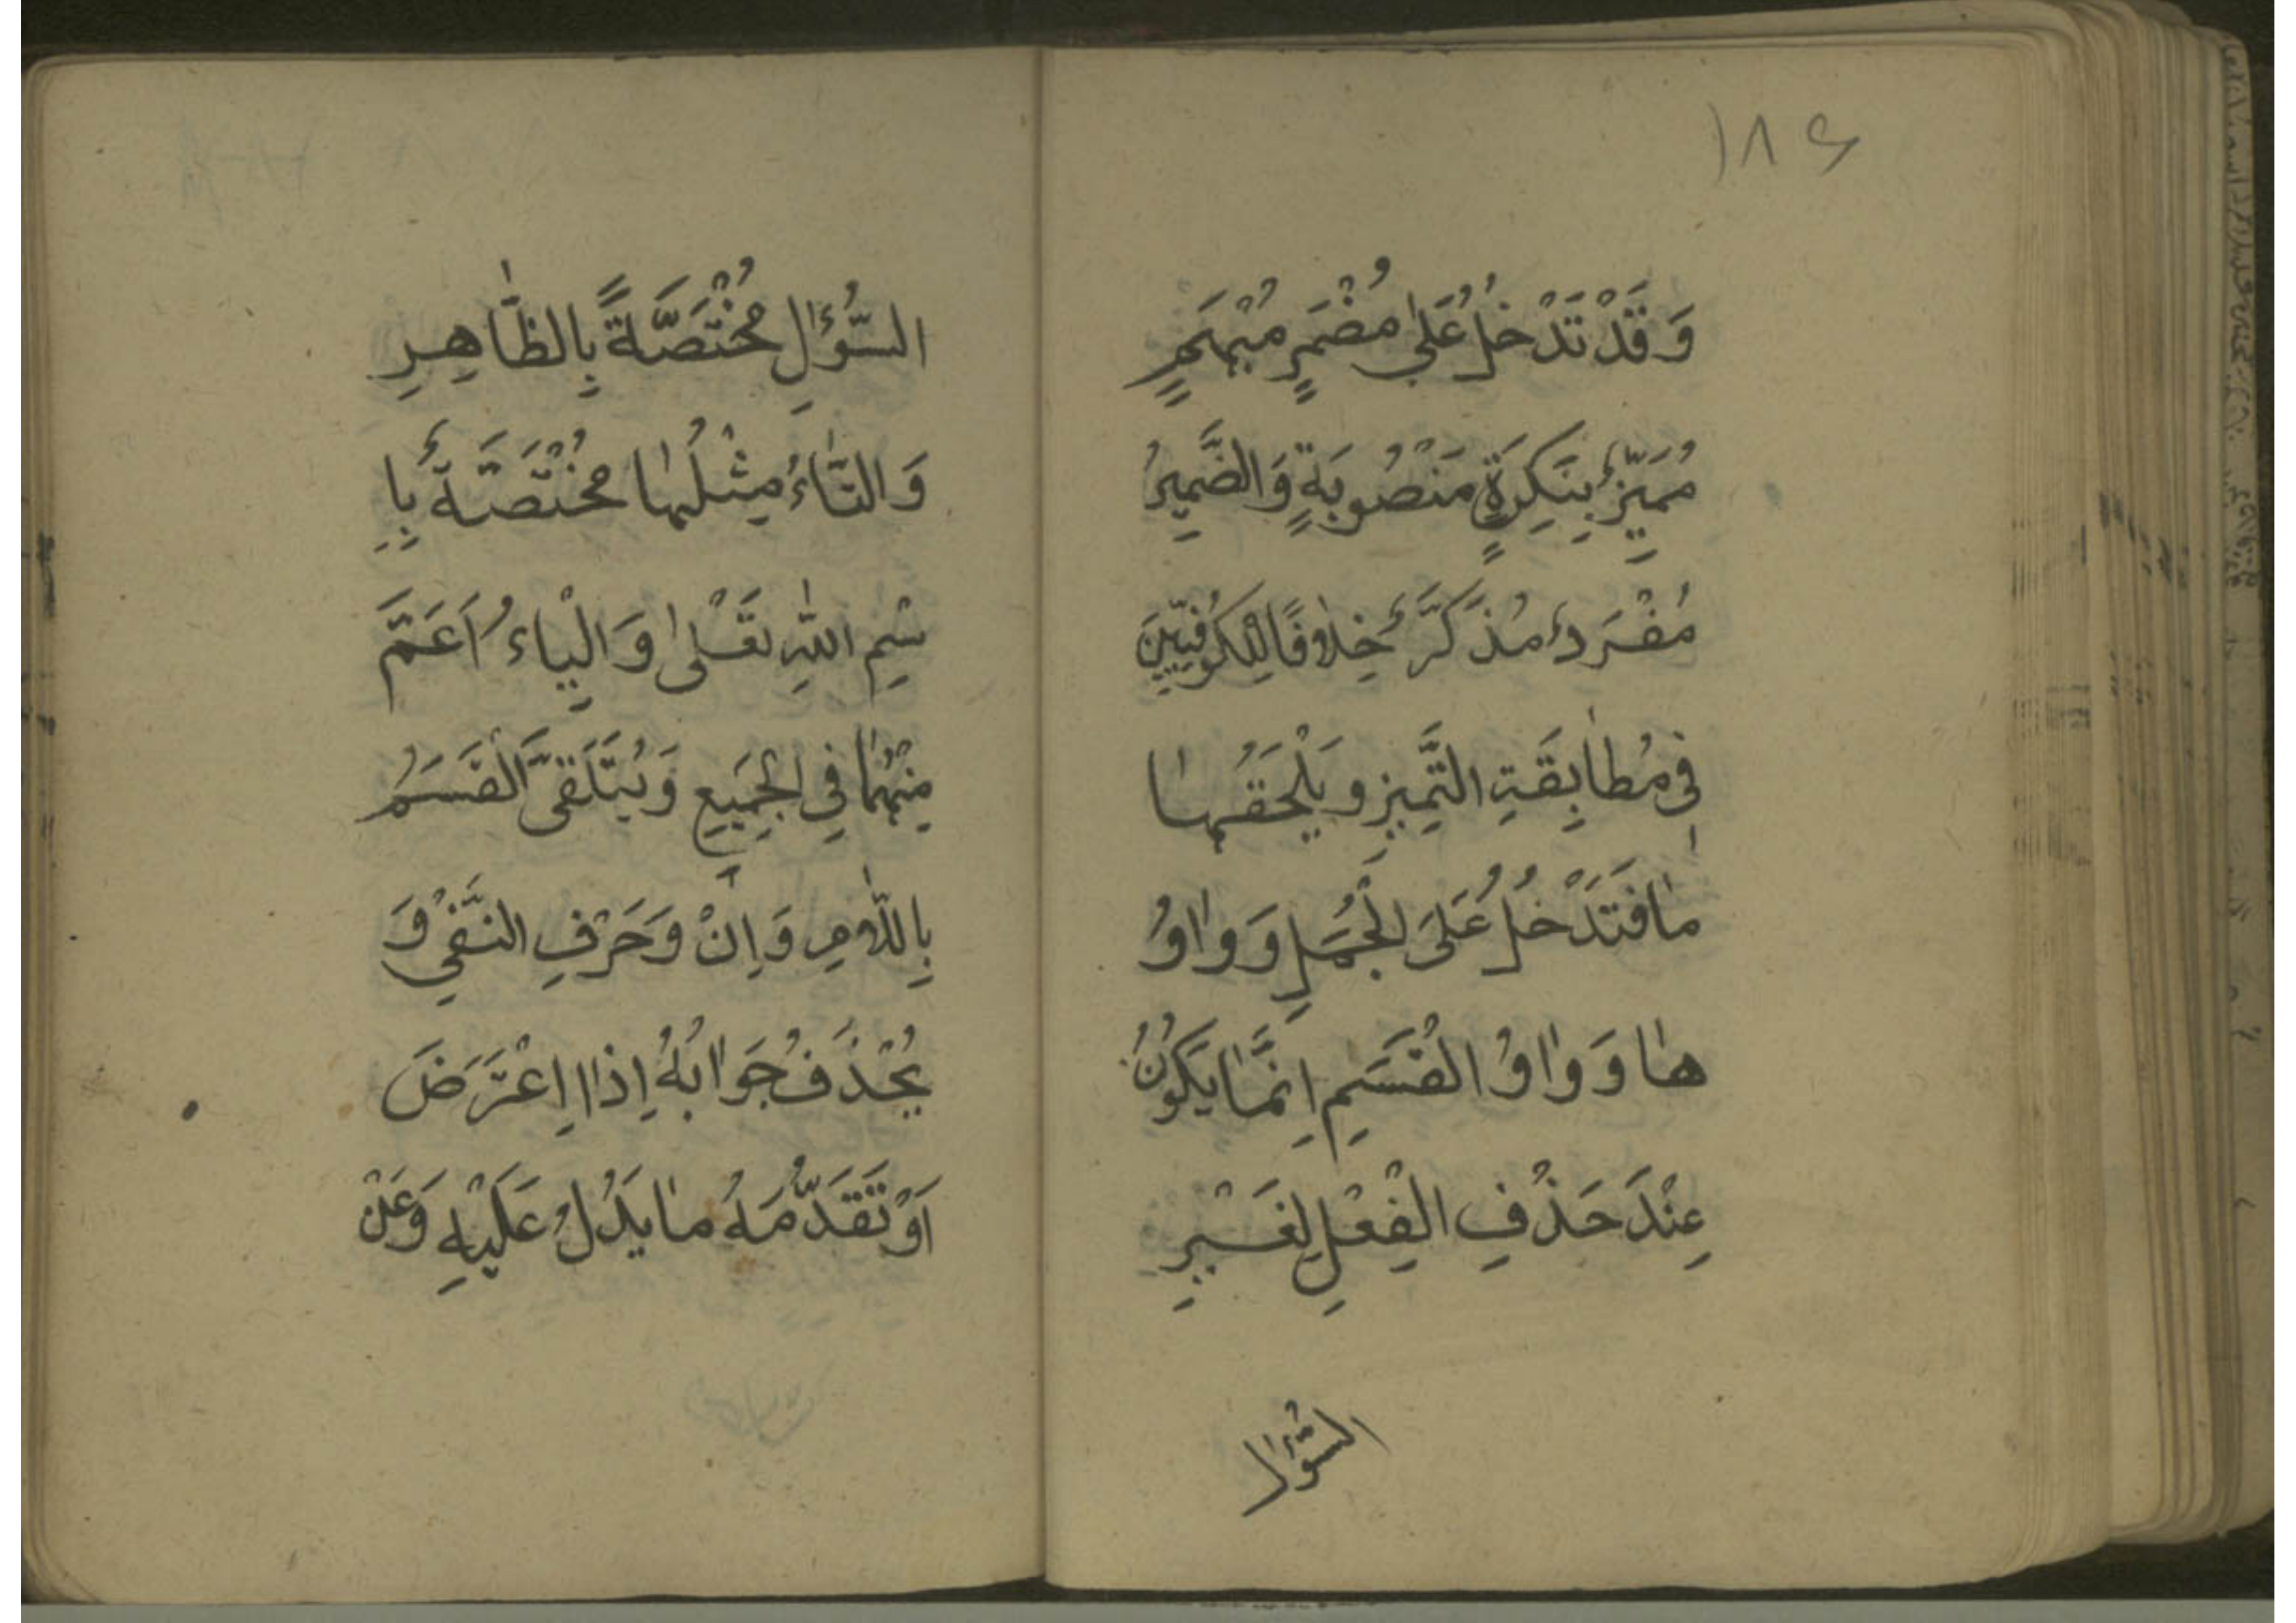 ۱۸۶
وَقَدْ تَدْخُلُ عَلٰى مُضْمَرٍ مُبْهَمٍ
مُمَيِّزٌ بِنَكِرَةٍ مَنْصُوبَةٍ وَالضَّمِيرُ
مُفْرَدٌ مُذَكَّرٌ خِلَافًا لِلْكُوفِيِّينَ
فِى مُطَابِقَةِ التَّمِيزِ وَيَلْحَقُهَا
مَا فَتَدْخُلُ عَلَى الْجُمَلِ وَوَاوُ
هَا وَوَاوُ الْقَسَمِ اِنَّمَا يَكُونُ
عِنْدَ حَذْفِ الْفِعْلِ لِغَيْرِ
السُّؤَال
السُّؤَالِ مُخْتَصَّةً بِالظَّاهِرِ
وَالتَّاءُ مِثْلُهَا مُخْتَصَّةٌ بِا
سْمِ اللّٰهِ تَعَالٰى وَالْبَاءُ اَعَمَّ
مِنْهُمَا فِي الْجَمِيعِ وَيُتَلَقَّى الْقَسَمُ
بِاللَّامِ وَاِنْ وَحَرْفِ النَّفْيِ وَ
يُحْذَفُ جَوَابُهُ اِذَا اِعْتَرَضَ
اَوْ تَقَدَّمَهُ مَا يَدُلُّ عَلَيْهِ وَعَنْ